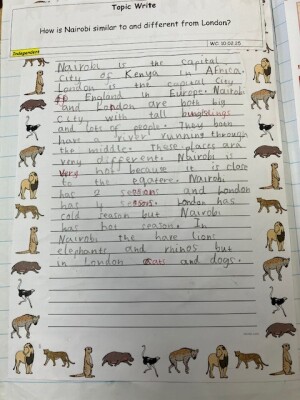 Topic Write
How is Nairobi similar to and different from London?
Independent
WC: 10.02.25
Nairobi is the capital
City of Kenya in Africa.
London is the capital City
England in Europe. Nairobi
and London are both big
City with tall bungldings
and lots of people. They both
have a river running through
the middle. These places are
very different. Nairobi is
very hot because it is close
to the eqatere. Nairobi
has 2 seosons and London
has 4 seosors. London has
cold season but Nairobi
has hot season. In
Nairobi the have lions
elephants and rhinos but
in London cats and dogs.